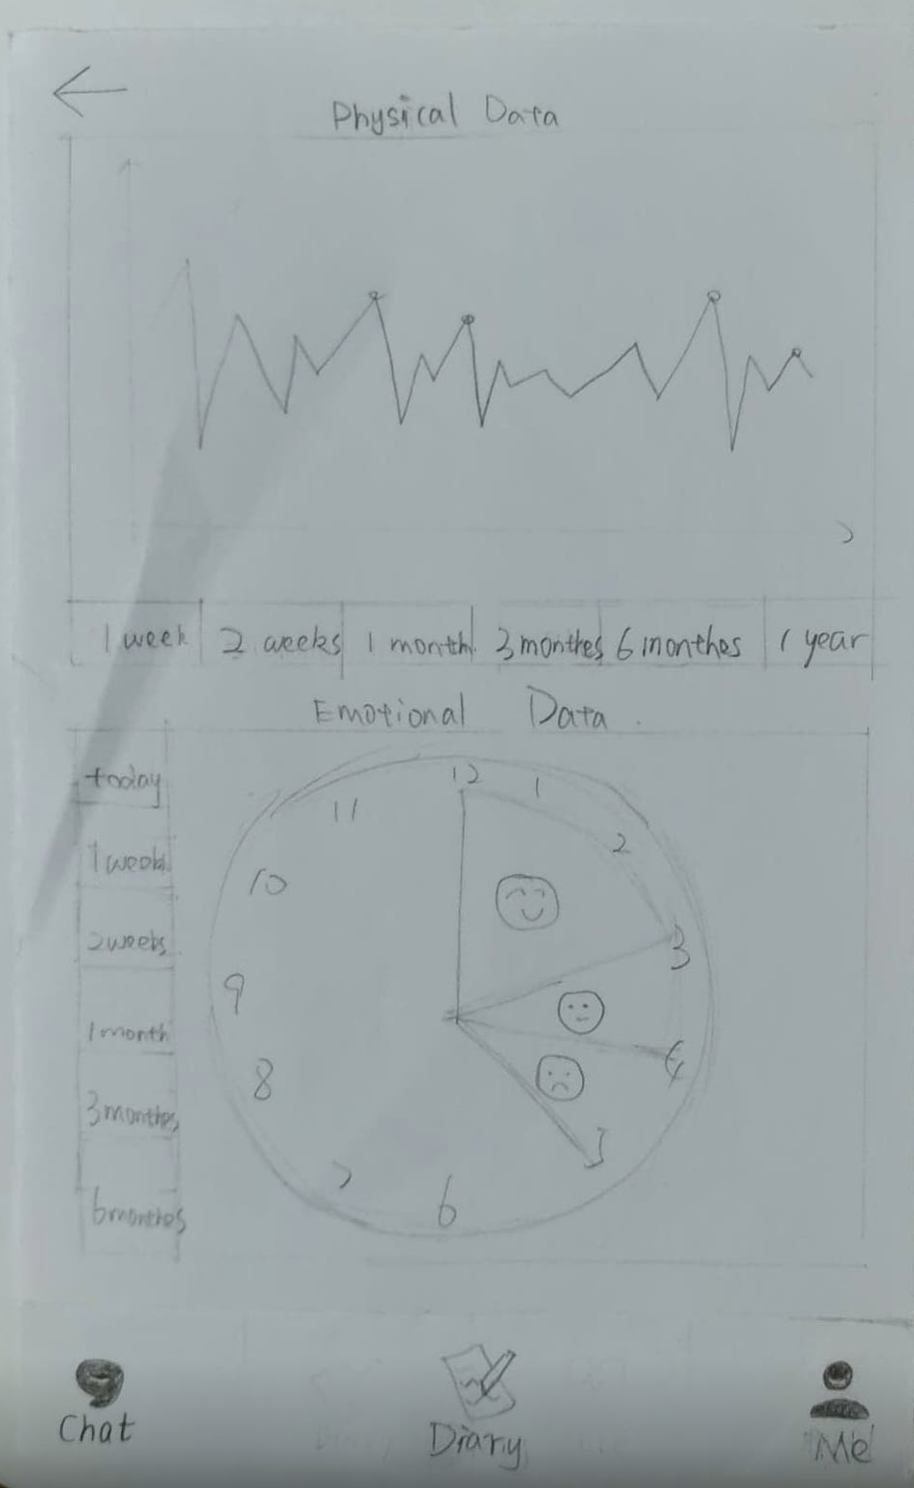 Physical Data
1 week 2 weeks 1 month 3 monthes 6 monthes 1 year
Emotional Data
today
1 week
2 weeks
1 month
3 monthes
6 monthes
12
1
2
3
4
5
6
7
8
9
10
11
Chat
Diary
Me